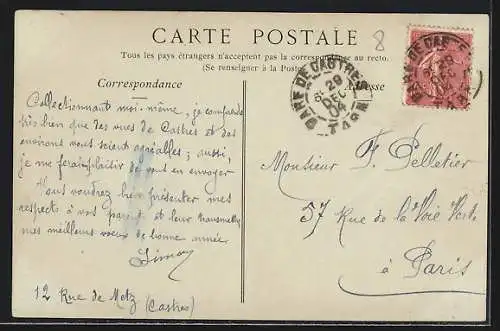 CARTE POSTALE
8
Tous les pays étrangers n'acceptent pas la correspondance au recto.
(Se renseigner à la Poste
Correspondance
Adresse
GARE DE CASTRES
29
DEC
04
TARN
Collectionnant moi-même, je comprends
très bien que des vues de Castres et des
environs vous soient agréables; aussi,
je me ferai plaisir de vous en envoyer
Vous voudrez bien présenter mes
respects à vos parents et leur transmettre
mes meilleurs voeux de bonne année
Simon
12 Rue de Metz (Castres)
Monsieur F. Pelletier
57 Rue de la Voie Verte
à Paris